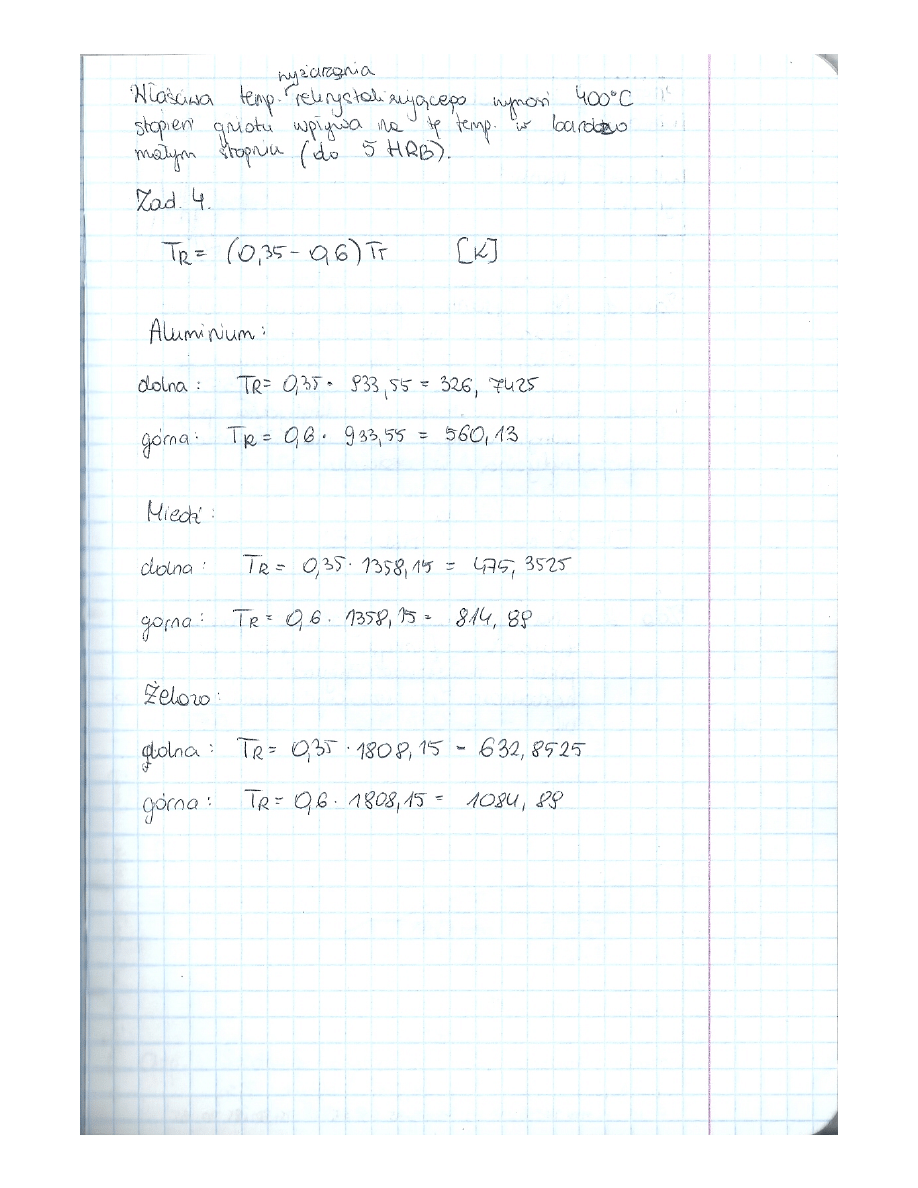 wyżarzania
Właściwa temp. rekrystalizującego wynosi 400°C
stopień gniotu wpływa na tę temp. w bardzo
małym stopniu (do 5 HRB).
Zad. 4.
TR = (0,35 - 0,6) Tt [K]
Aluminium:
dolna: TR = 0,35 · 933,55 = 326,7425
górna: TR = 0,6 · 933,55 = 560,13
Miedź:
dolna: TR = 0,35 · 1358,15 = 475,3525
gorna: TR = 0,6 · 1358,15 = 814,89
Żelazo:
dolna: TR = 0,35 · 1808,15 = 632,8525
górna: TR = 0,6 · 1808,15 = 1084,89